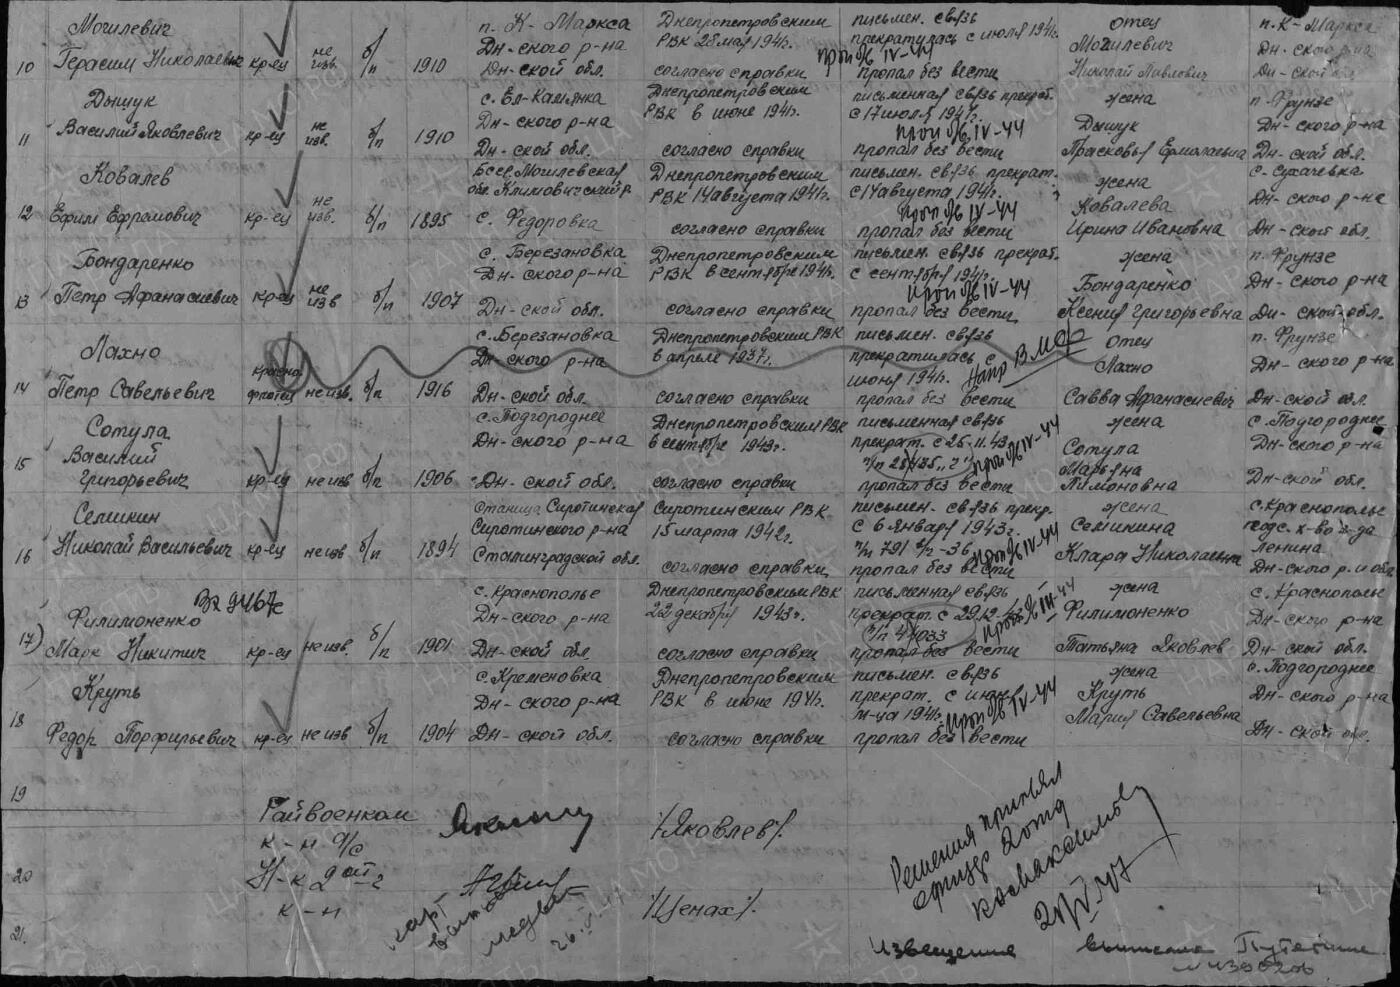 10
Могилевич
Герасим Николаевич
кр-ец
не
изв.
б/п
1910
п. К- Маркса
Дн-ского р-на
Дн-ской обл.
Днепропетровским
РВК 28 мая 1941г.
согласно справки
письмен. связь
прекратилась с июля 1941г.
проп б/в IV-44
пропал без вести
отец
Могилевич
Николай Павлович
п. К- Маркса
Дн- ского р-на
Дн- ской обл.
11
Дыщук
Василий Яковлевич
кр-ец
не
изв.
б/п
1910
с. Ел-Камянка
Дн- ского р-на
Дн- ской обл.
Днепропетровским
РВК в июне 1941г.
согласно справки
письменная связь прекрат.
с 17 июля 1941г.
проп б/в IV-44
пропал без вести
жена
Дыщук
Прасковья Ермолаевна
п. Фрунзе
Дн- ского р-на
Дн- ской обл.
12
Ковалев
Ефим Ефремович
кр-ец
не
изв.
б/п
1895
Бсср Могилевская
обл. Климовичский р.
с. Федоровка
Днепропетровским
РВК 14 августа 1941г.
согласно справки
письмен. связь прекрат.
с 14 августа 1941г.
проп б/в IV-44
пропал без вести
жена
Ковалева
Ирина Ивановна
с. Сухачевка
Дн- ского р-на
Дн- ской обл.
13
Бондаренко
Петр Афанасиевич
кр-ец
не
изв
б/п
1907
с. Березановка
Дн- ского р-на
Дн- ской обл.
Днепропетровским
РВК в сентябре 1941г.
согласно справки
письмен. связь прекрат.
с сентября 1941г.
проп б/в IV-44
пропал без вести
жена
Бондаренко
Ксения Григорьевна
п. Фрунзе
Дн- ского р-на
Дн- ской обл.
14
Лахно
Петр Савельевич
красно
флотец
не изв.
б/п
1916
с. Березановка
Дн- ского р-на
Дн- ской обл.
Днепропетровским РВК
в апреле 1937г.
согласно справки
письмен. связь
прекратилась с
июня 1941г.
Напр ВМФ
пропал без вести
отец
Лахно
Савва Афанасиевич
п. Фрунзе
Дн- ского р-на
Дн- ской обл.
15
Сотула
Василий
Григорьевич
кр-ец
не изв
б/п
1906
с. Подгороднее
Дн- ского р-на
Дн- ской обл.
Днепропетровским РВК
в сентябре 1943г.
согласно справки
письменная связь
прекрат. с 25-11.43
проп б/в IV-44
пропал без вести
жена
Сотула
Марьяна
Лимоновна
с. Подгороднее
Дн- ского р-на
Дн- ской обл.
16
Семикин
Николай Васильевич
кр-ец
не изв
б/п
1894
станица Сиротинская
Сиротинского р-на
Сталинградской обл.
Сиротинским РВК
15 марта 1942г.
согласно справки
письмен. связь прекр.
с 6 января 1943г.
проп б/в IV-44
пропал без вести
жена
Семикина
Клара Николаевна
с. Краснополье
Ленина
Дн-ского р. и обл
17)
Филимоненко
Марк Никитич
кр-ец
не изв.
б/п
1901
с. Краснополье
Дн- ского р-на
Дн- ской обл
Днепропетровским РВК
22 декабря 1943г.
согласно справки
письменная связь
прекрат. с 29.12-43
п/п 47033
проп б/в III-44
пропал без вести
жена
Филимоненко
Татьяна Яковлев
с. Краснополье
Дн- ского р-на
Дн- ской обл
18
Круть
Федор Порфирьевич
кр-ец
не изв
б/п
1904
с. Кременовка
Дн- ского р-на
Дн- ской обл.
Днепропетровским
РВК в июне 1941г.
согласно справки
письмен. связь
прекрат. с июня
м-ца 1941г.
проп б/в IV-44
пропал без вести
жена
Круть
Мария Савельевна
с. Подгороднее
Дн- ского р-на
Дн- ской обл.
19
Райвоенком
к-н
/Яковлев/.
20
к-н
/Ценах/.
21.
Решения принял
извещение